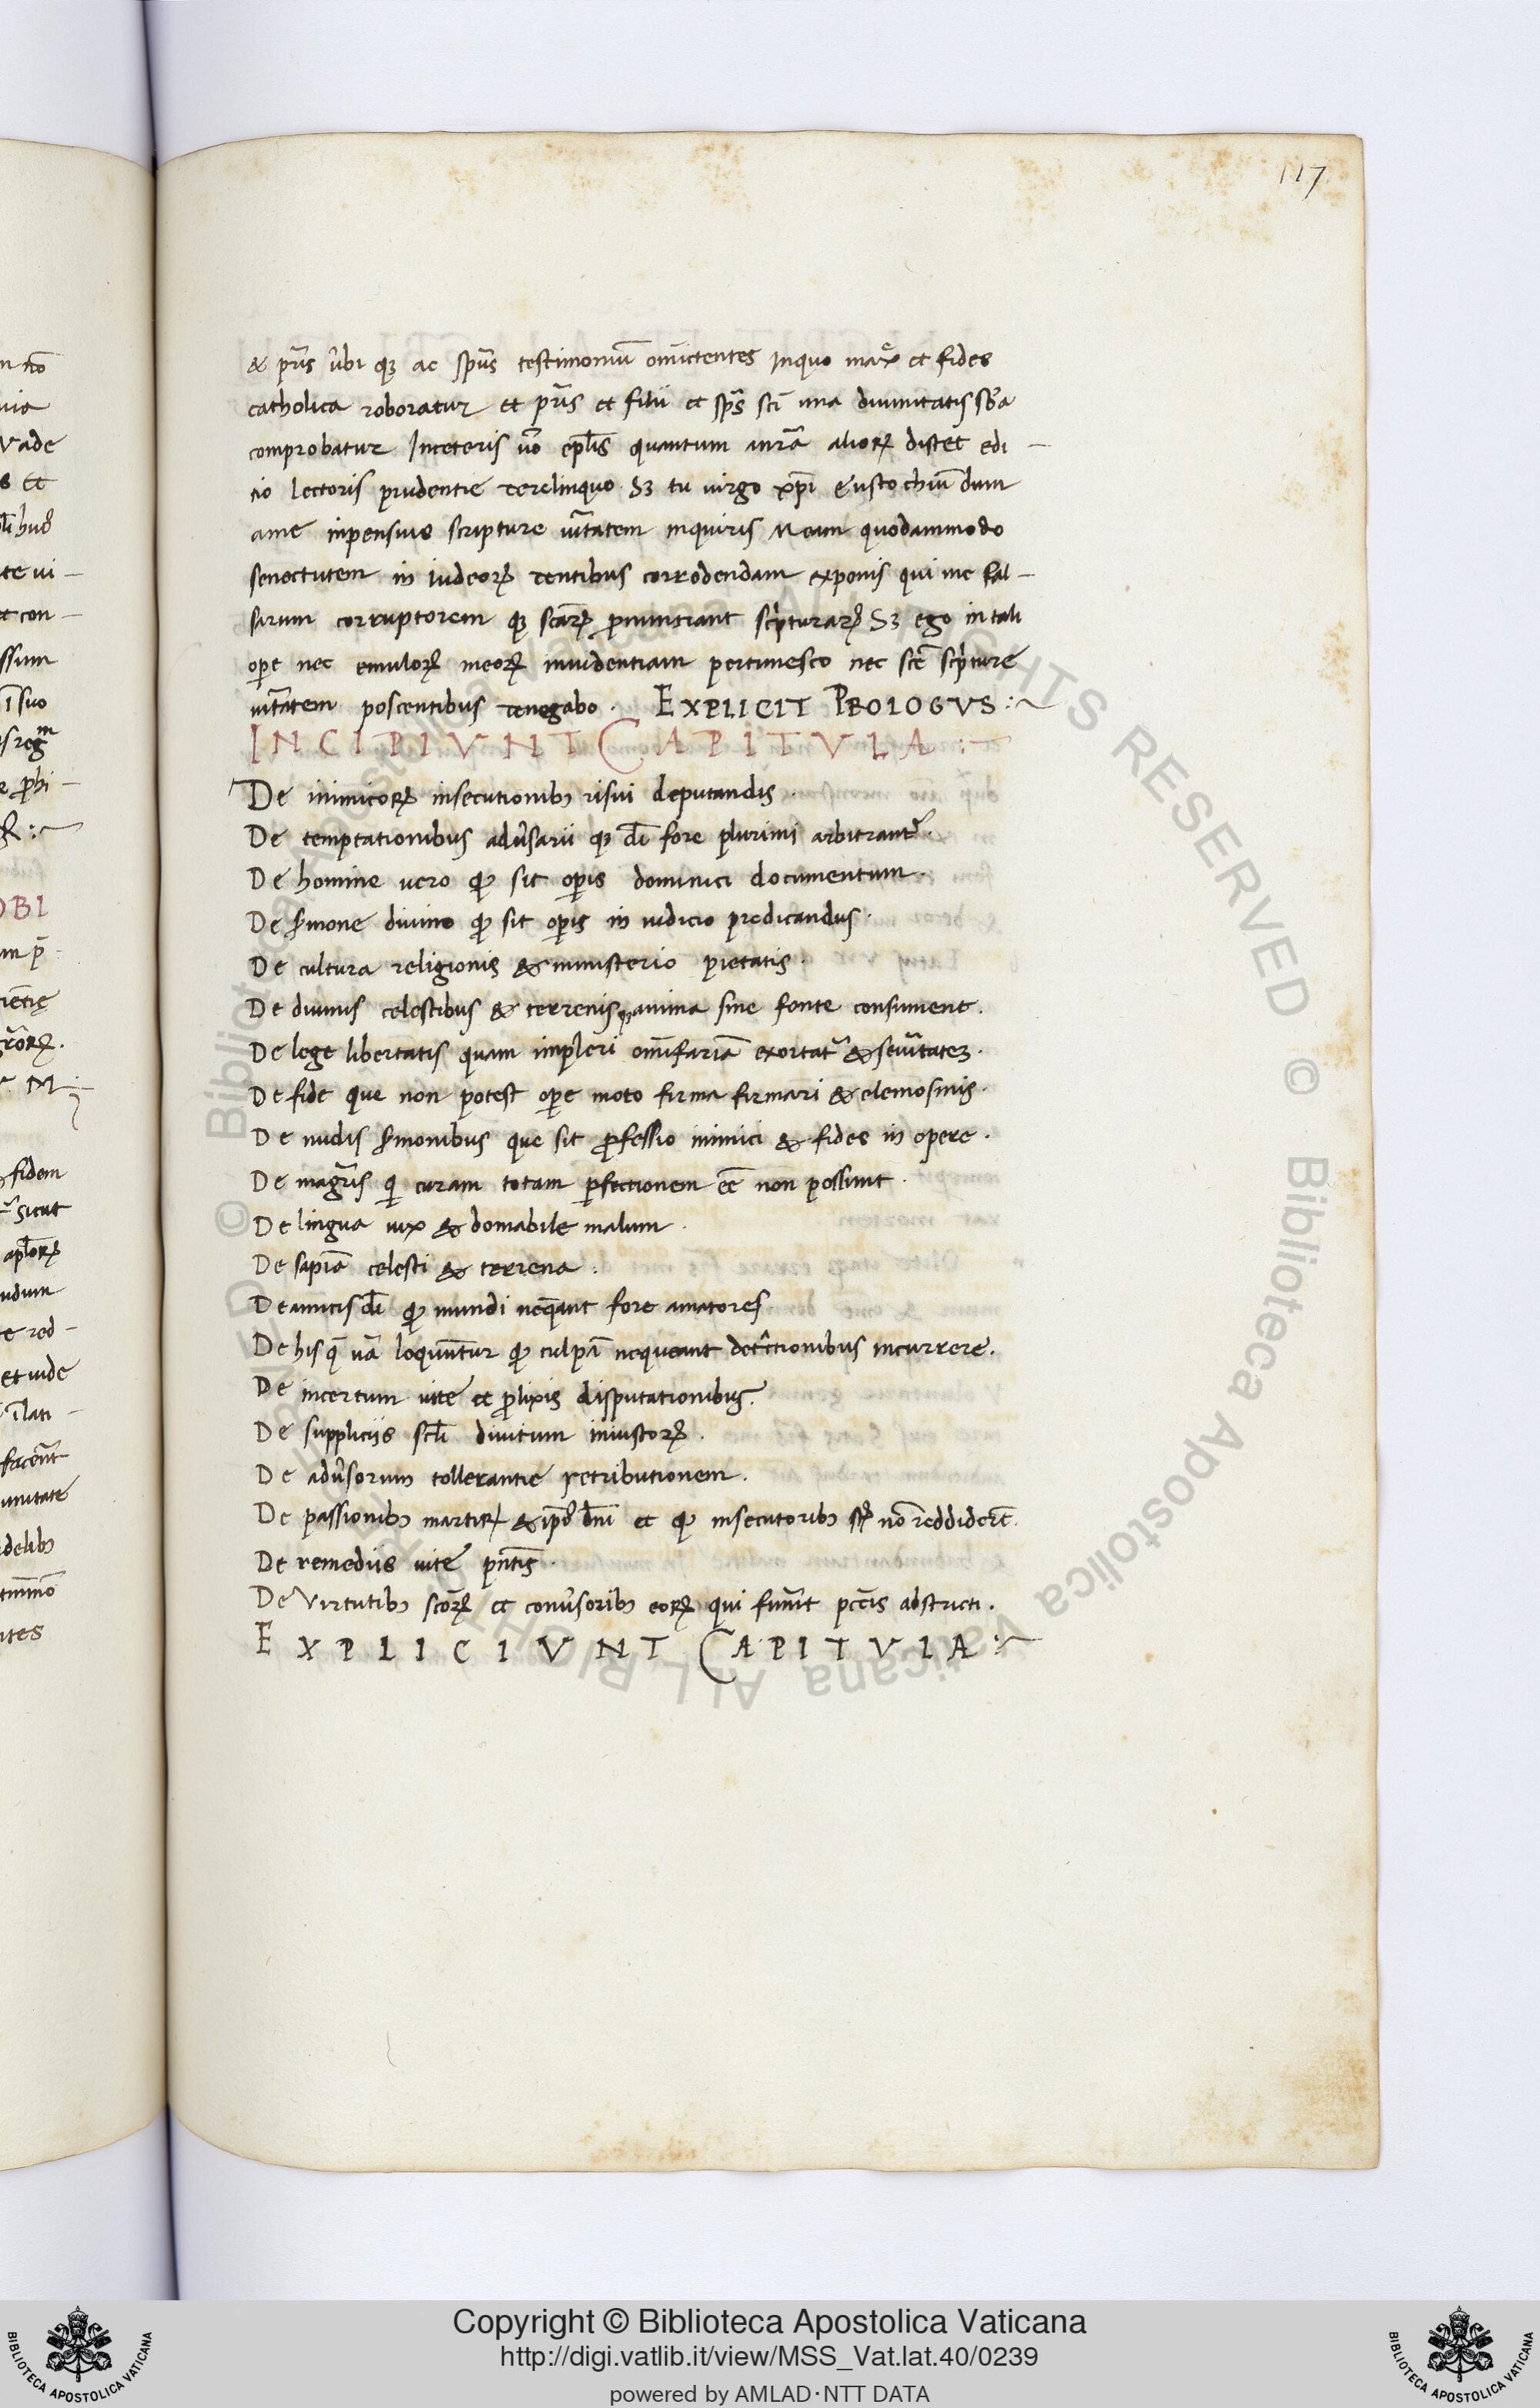 117
& pr̄is ũbi q3 ac sp̄us testimoniū om̄ictentes Inquo max̄ et fides
catholica roboratur et pr̄is et filii et sp̄s sc̄i una diuinitatis sb̄a
comprobatur Inceteris ūo ep̄lis quantum anr̄a alioꝝ distet edi –
tio lectoris prudentie terelinquo · S3 tu uirgo xp̄i Eustochiū dum
ame inpensius scripture ūitatem inquiris Meam quodammodo
senectutem in iudeoꝝ tentibus corrodendam exponis qui me fal –
sarum corruptorem q3 sc̄aꝝ ꝓnuntiant sc̄pturaꝝ S3 ego in tali
oꝑe nec emuloꝝ meoꝝ inuidentiam pertimesco nec sc̄e sc̄pture
uītatem poscentibus tenegabo · EXPLICIT PROLOGVS :~
INCIPIVNT CAPITVLA :~
De inimicoꝝ insecutionib3 risui deputandis ·
De temptationibus adūsarii q3 dī fore plurimi arbitrant᷑ ·
De homine uero qꝫ sit oꝑis dominici documentum ·
De s̄mone diuino qꝫ sit oꝑis in iudicio predicandus ·
De cultura religionis & ministerio pietatis ·
De diuinis celestibus & terrenis qꝫ anima sine fonte consument .
De lege libertatis quam impleri om̄ifariā exortat᷑ & seūitatez ·
De fide que non potest oꝑe moto firma firmari & elemosinis ·
De nudis s̄monibus que sit ꝓfessio inimici & fides in opere ·
De magr̄is qi curam totam ꝑfectionem ēē non possunt ·
De lingua uix & domabile malum ·
De sapiā celesti & terrena .
De amicis dī qꝫ mundi neq̄ant fore amatores
De his q̄ uā loqunt̄ur qꝫ culpā nequeant det̄ctionibus incurrere .
De incertum uite et ꝓlixis disputationibus .
De suppliciis scl̄i diuitum iniustoꝝ .
De adūsorum tollerantie retributionem .
De passionib3 martiꝝ & ip̄o dn̄i et qꝫ insecutorib3 nō reddider̄t .
De remediis uite pn̄tis ·
De Virtutib3 sc̄oꝝ et conūsorib3 eoꝝ qui fuer̄it pcc̄is abstricti .
EXPLICIVNT CAPITVLA :~
© Biblioteca Apostolica Vaticana ALL RIGHTS RESERVED
Copyright © Biblioteca Apostolica Vaticana
http://digi.vatlib.it/view/MSS_Vat.lat.40/0239
powered by AMLAD·NTT DATA
BIBLIOTECA APOSTOLICA VATICANA
BIBLIOTECA APOSTOLICA VATICANA